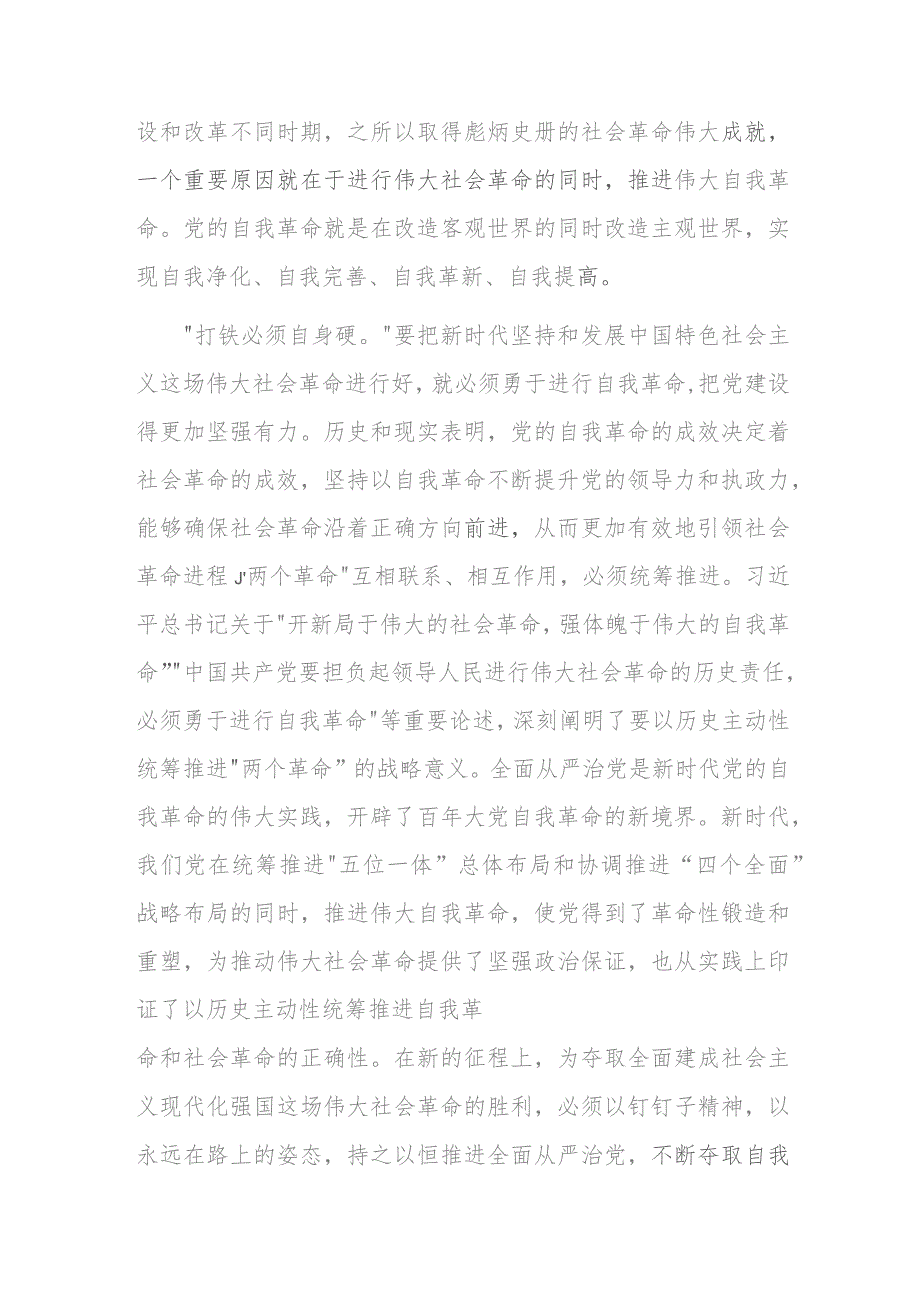 设和改革不同时期，之所以取得彪炳史册的社会革命伟大成就，
一个重要原因就在于进行伟大社会革命的同时，推进伟大自我革
命。党的自我革命就是在改造客观世界的同时改造主观世界，实
现自我净化、自我完善、自我革新、自我提高。
"打铁必须自身硬。"要把新时代坚持和发展中国特色社会主
义这场伟大社会革命进行好，就必须勇于进行自我革命,把党建设
得更加坚强有力。历史和现实表明，党的自我革命的成效决定着
社会革命的成效，坚持以自我革命不断提升党的领导力和执政力，
能够确保社会革命沿着正确方向前进，从而更加有效地引领社会
革命进程 J'两个革命"互相联系、相互作用，必须统筹推进。习近
平总书记关于"开新局于伟大的社会革命，强体魄于伟大的自我革
命”"中国共产党要担负起领导人民进行伟大社会革命的历史责任，
必须勇于进行自我革命"等重要论述，深刻阐明了要以历史主动性
统筹推进"两个革命”的战略意义。全面从严治党是新时代党的自
我革命的伟大实践，开辟了百年大党自我革命的新境界。新时代，
我们党在统筹推进"五位一体”总体布局和协调推进“四个全面”
战略布局的同时，推进伟大自我革命，使党得到了革命性锻造和
重塑，为推动伟大社会革命提供了坚强政治保证，也从实践上印
证了以历史主动性统筹推进自我革
命和社会革命的正确性。在新的征程上，为夺取全面建成社会主
义现代化强国这场伟大社会革命的胜利，必须以钉钉子精神，以
永远在路上的姿态，持之以恒推进全面从严治党，不断夺取自我